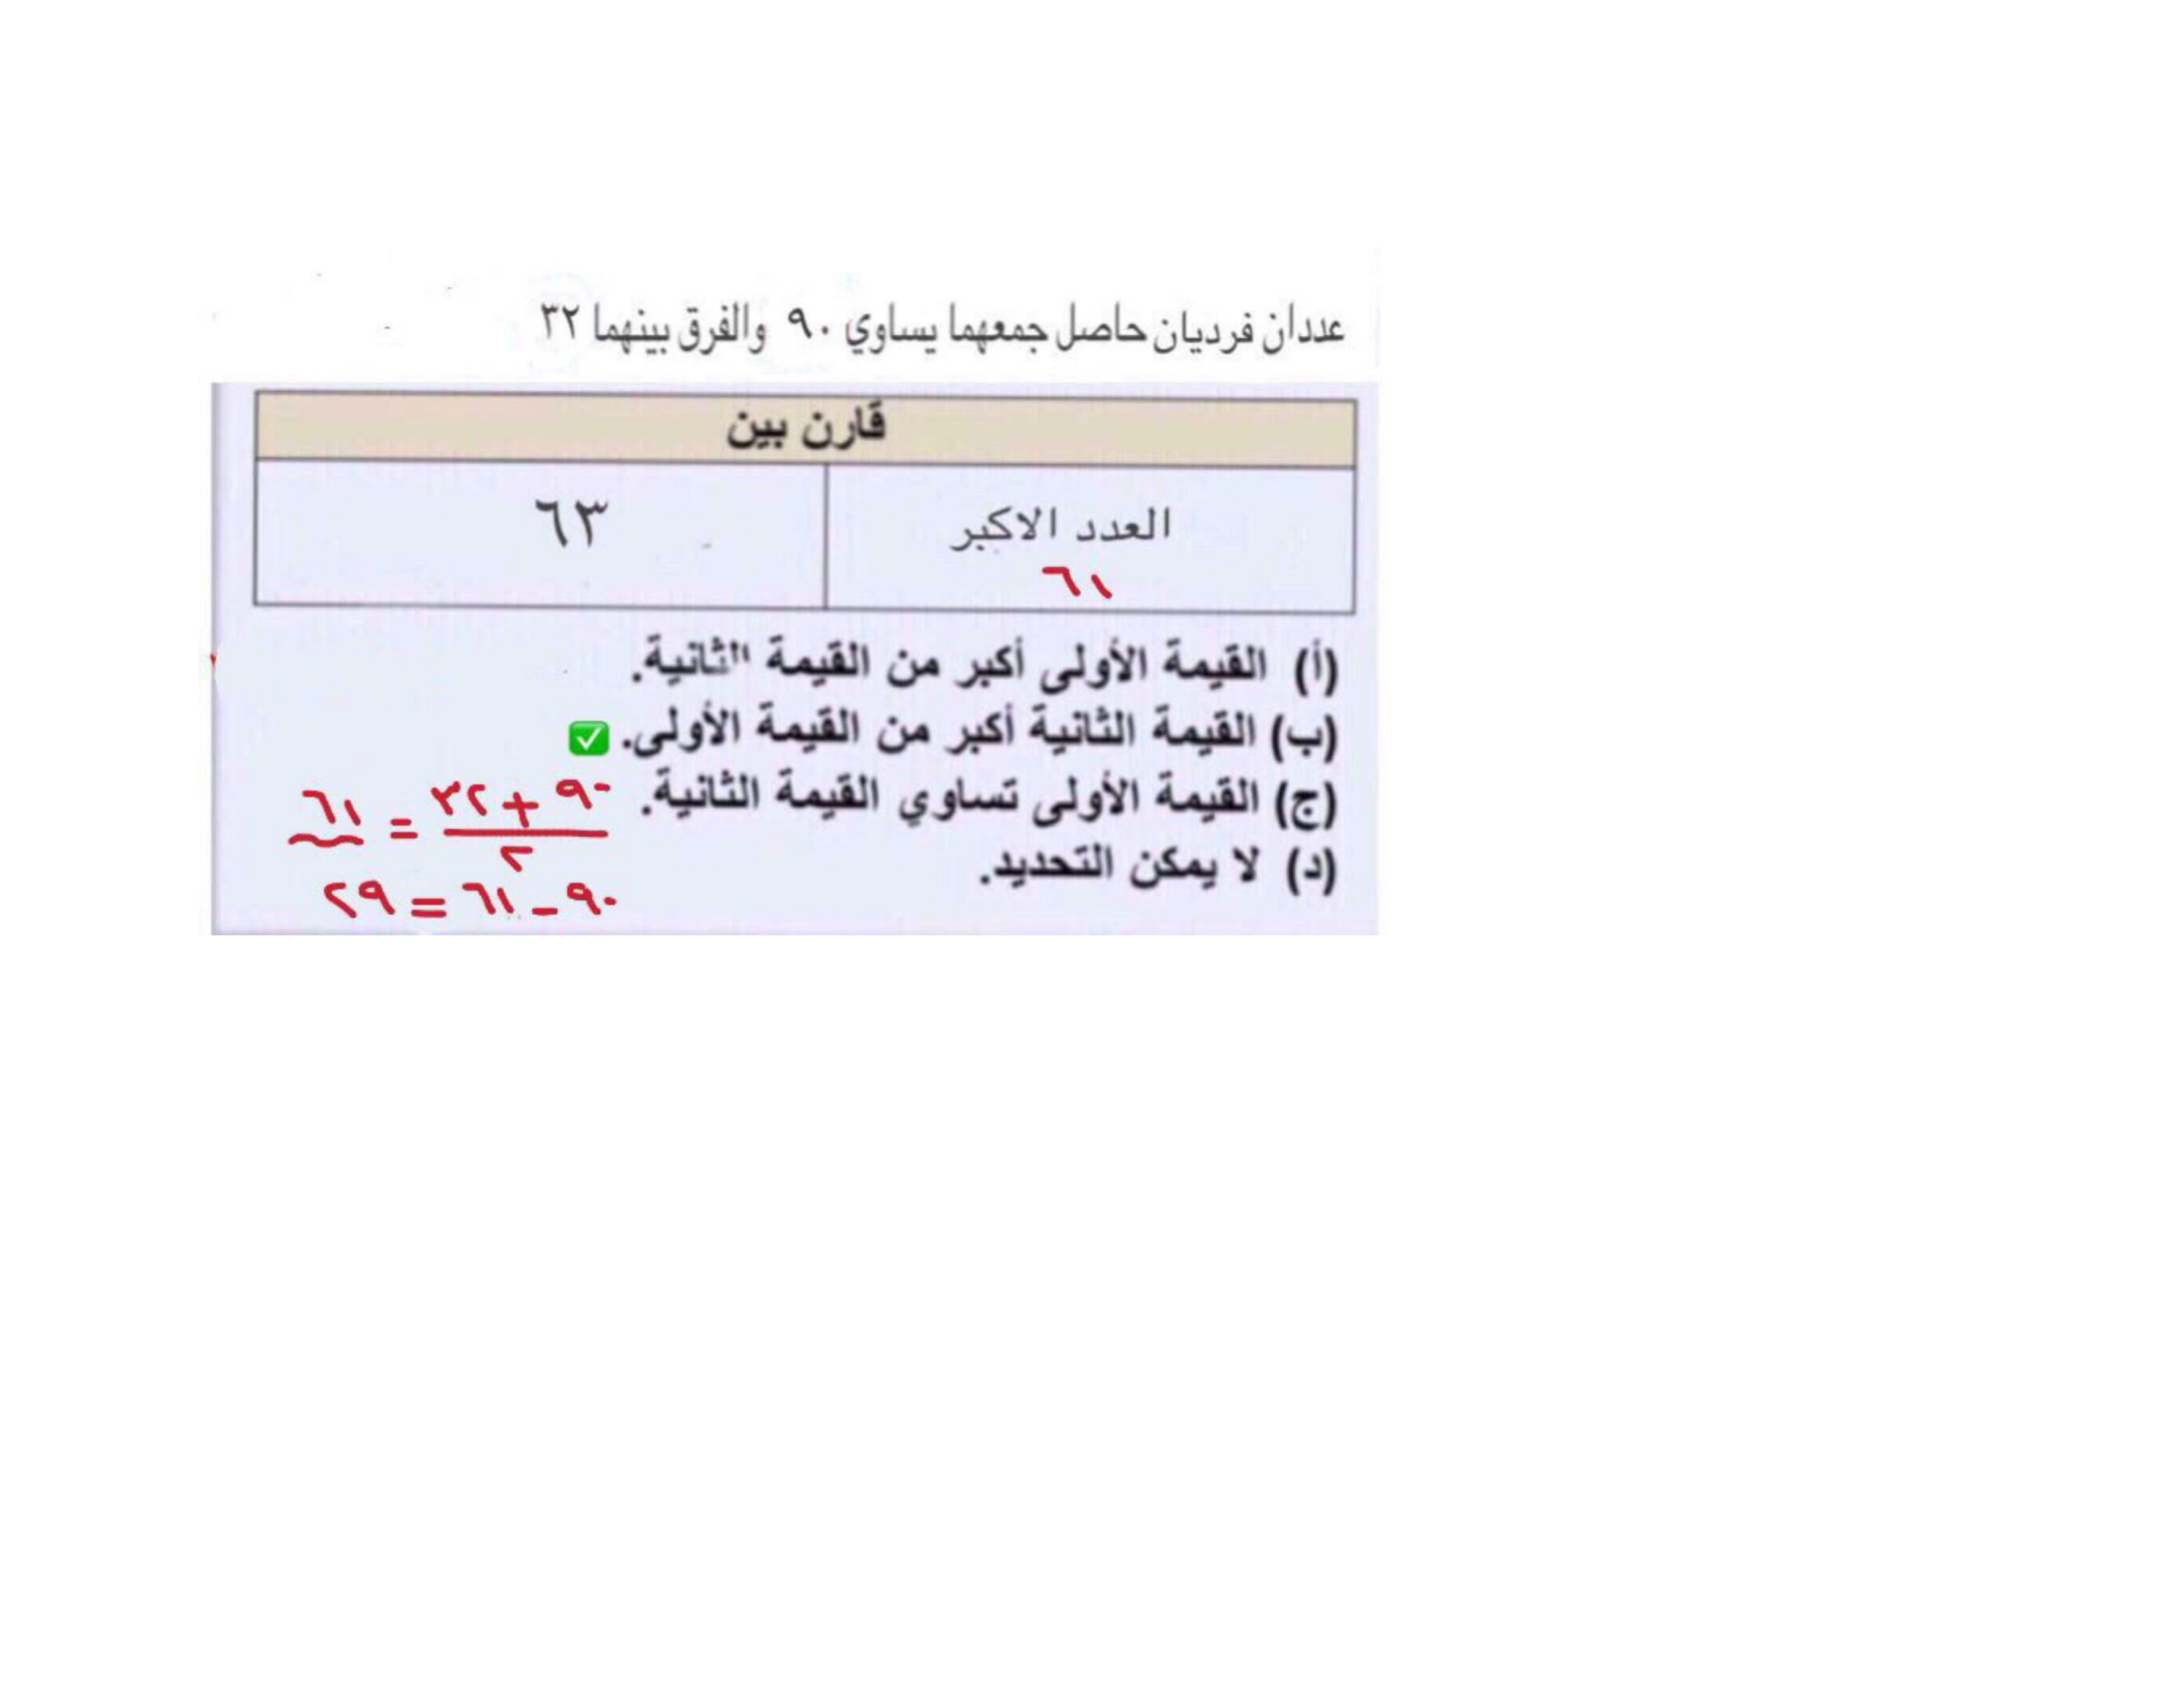 عددان فرديان حاصل جمعهما يساوي ٩٠ والفرق بينهما ٣٢
قارن بين
العدد الاكبر ٦٣
٦١
(أ) القيمة الأولى أكبر من القيمة الثانية.
(ب) القيمة الثانية أكبر من القيمة الأولى. ✅
(ج) القيمة الأولى تساوي القيمة الثانية.
(د) لا يمكن التحديد.
٩٠ + ٣٢ = ٦١
٢
٩٠ - ٦١ = ٢٩